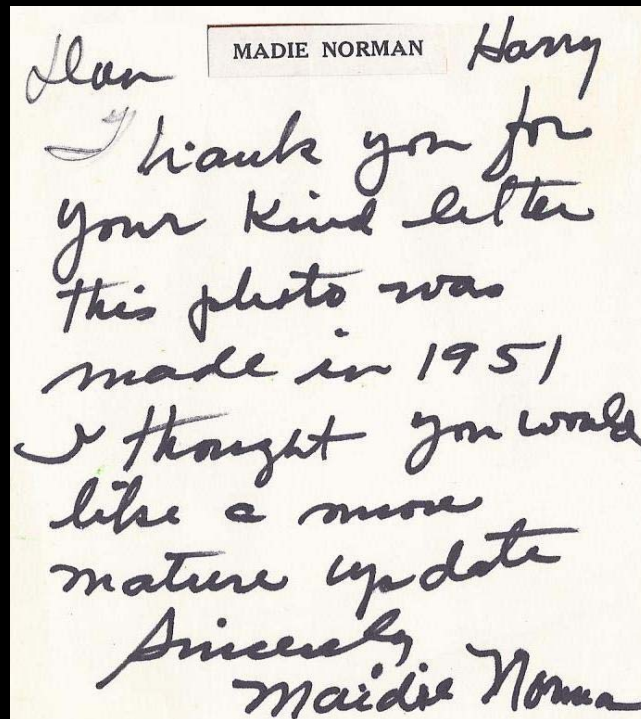 MADIE NORMAN
Dear Harry
Thank you for
your kind letter
this photo was
made in 1951
I thought you would
like a more
mature update
Sincerely
Maidie Norman